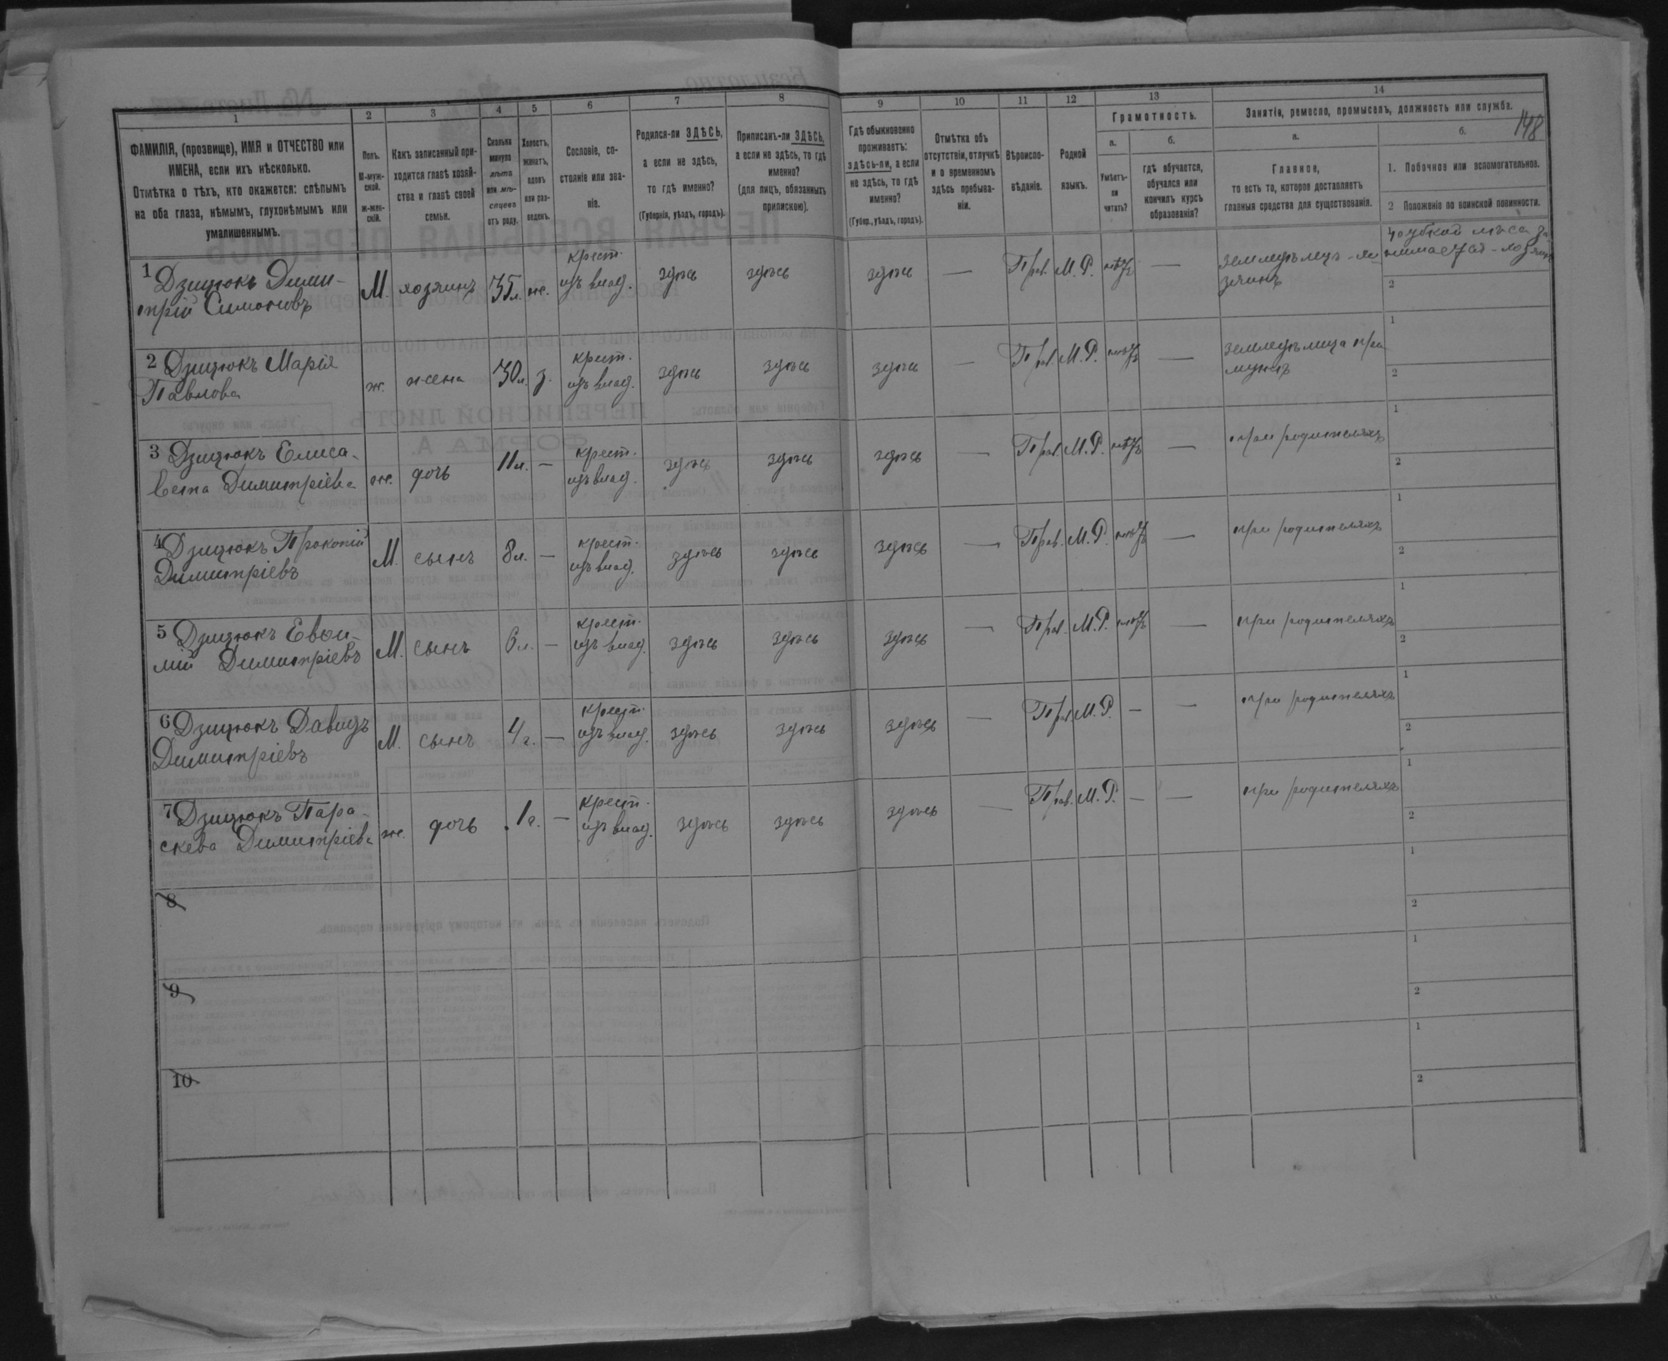 1 2 3 4 5 6 7 8 9 10 11 12 13 14
148
ФАМИЛІЯ, (прозвище), ИМЯ и ОТЧЕСТВО или ИМЕНА, если ихъ нѣсколько.
Отмѣтка о тѣхъ, кто окажется: слѣпымъ на оба глаза, нѣмымъ, глухонѣмымъ или умалишеннымъ.
Полъ. М-муж-ской. ж-жен-скій.
Какъ записанный при-ходится главѣ хозяй-ства и главѣ своей семьи.
Сколько минуло лѣтъ или мѣ-сяцевъ отъ роду.
Холостъ, женатъ, вдовъ или раз-веденъ.
Сословіе, со-стояніе или зва-ніе.
Родился-ли ЗДѢСЬ, а если не здѣсь, то гдѣ именно?
(Губернія, уѣздъ, городъ).
Приписанъ-ли ЗДѢСЬ, а если не здѣсь, то гдѣ именно?
(для лицъ, обязанныхъ припискою).
Гдѣ обыкновенно проживаетъ: здѣсь-ли, а если не здѣсь, то гдѣ именно?
(Губер., уѣздъ, городъ).
Отмѣтка объ отсутствіи, отлучкѣ и о временномъ здѣсь пребыва-ніи.
Вѣроиспо-вѣданіе.
Родной языкъ.
Грамотность.
а. Умѣетъ-ли читать?
б. гдѣ обучается, обучался или кончилъ курсъ образованія?
Занятіе, ремесло, промыселъ, должность или служба.
а. Главное, то есть то, которое доставляетъ главныя средства для существованія.
б.
1. Побочное или вспомогательное.
2 Положеніе по воинской повинности.
1 Дзицюкъ Дими-трій Симоновъ М. хозяинъ 35 л. ж. крест. изъ влад. здѣсь здѣсь здѣсь — Прав. М.Р. нѣтъ — земледѣлец - хозяинъ рубкой лѣса
2
2 Дзицюкъ Марія Павлова ж. жена 30 л. з. крест. изъ влад. здѣсь здѣсь здѣсь — Прав. М.Р. нѣтъ — при мужѣ
1
2
3 Дзицюкъ Елиса-вета Димитріева ж. дочь 11 л. — крест. изъ влад. здѣсь здѣсь здѣсь — Прав. М.Р. нѣтъ — при родителяхъ
1
2
4 Дзицюкъ Прокопій Димитріевъ М. сынъ 8 л. — крест. изъ влад. здѣсь здѣсь здѣсь — Прав. М.Р. нѣтъ — при родителяхъ
1
2
5 Дзицюкъ Евѳи-мій Димитріевъ М. сынъ 6 л. — крест. изъ влад. здѣсь здѣсь здѣсь — Прав. М.Р. нѣтъ — при родителяхъ
1
2
6 Дзицюкъ Давидъ Димитріевъ М. сынъ 4 г. — крест. изъ влад. здѣсь здѣсь здѣсь — Прав. М.Р. — — при родителяхъ
1
2
7 Дзицюкъ Пара-скева Димитріева ж. дочь 1 г. — крест. изъ влад. здѣсь здѣсь здѣсь — Прав. М.Р. — — при родителяхъ
1
2
8
1
2
9
1
2
10
1
2